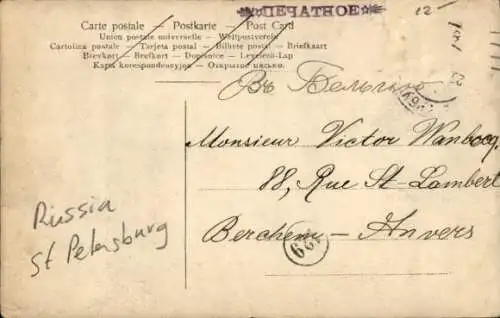 Carte postale — Postkarte — Post Card
★ПЕЧАТНОЕ★
12-
Union postale universelle — Weltpostverein
Cartolina postale — Tarjeta postal — Bilhete postal — Briefkaart
Brevkort — Brefkort — Dopisnice — Levelező-Lap
Karta korespondencyjna — Открытое письмо.
Въ Бельгию
Monsieur Victor
88, Rue St-Lambert
Berchem-Anvers
Russia
St Petersburg